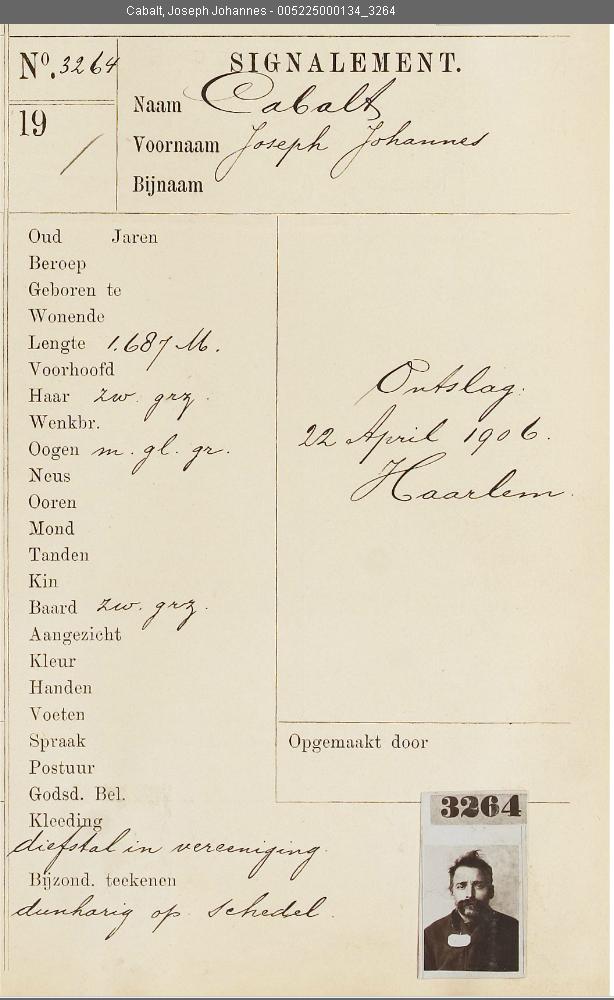 Cabalt, Joseph Johannes - 005225000134_3264
No. 3264
SIGNALEMENT.
19
Naam Cabalt
Voornaam Joseph Johannes
Bijnaam
Oud Jaren
Beroep
Geboren te
Wonende
Lengte 1.687 M.
Voorhoofd
Haar zw. grz.
Wenkbr.
Oogen m. gl. gr.
Neus
Ooren
Mond
Tanden
Kin
Baard zw. grz.
Aangezicht
Kleur
Handen
Voeten
Spraak
Postuur
Godsd. Bel.
Kleeding
diefstal in vereeniging.
Bijzond. teekenen
dunharig op schedel.
Ontslag.
22 April 1906.
Haarlem.
Opgemaakt door
3264